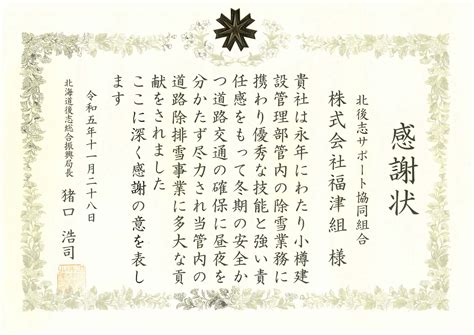 感謝状
北後志サポート協同組合
株式会社福津組 様
貴社は永年にわたり小樽建
設管理部管内の除雪業務に
携わり優秀な技能と強い責
任感をもって冬期の安全か
つ道路交通の確保に昼夜を
分かたず尽力され当管内の
道路除排雪事業に多大な貢
献をされました
ここに深く感謝の意を表し
ます
令和五年十一月二十八日
北海道後志総合振興局長 猪口 浩司